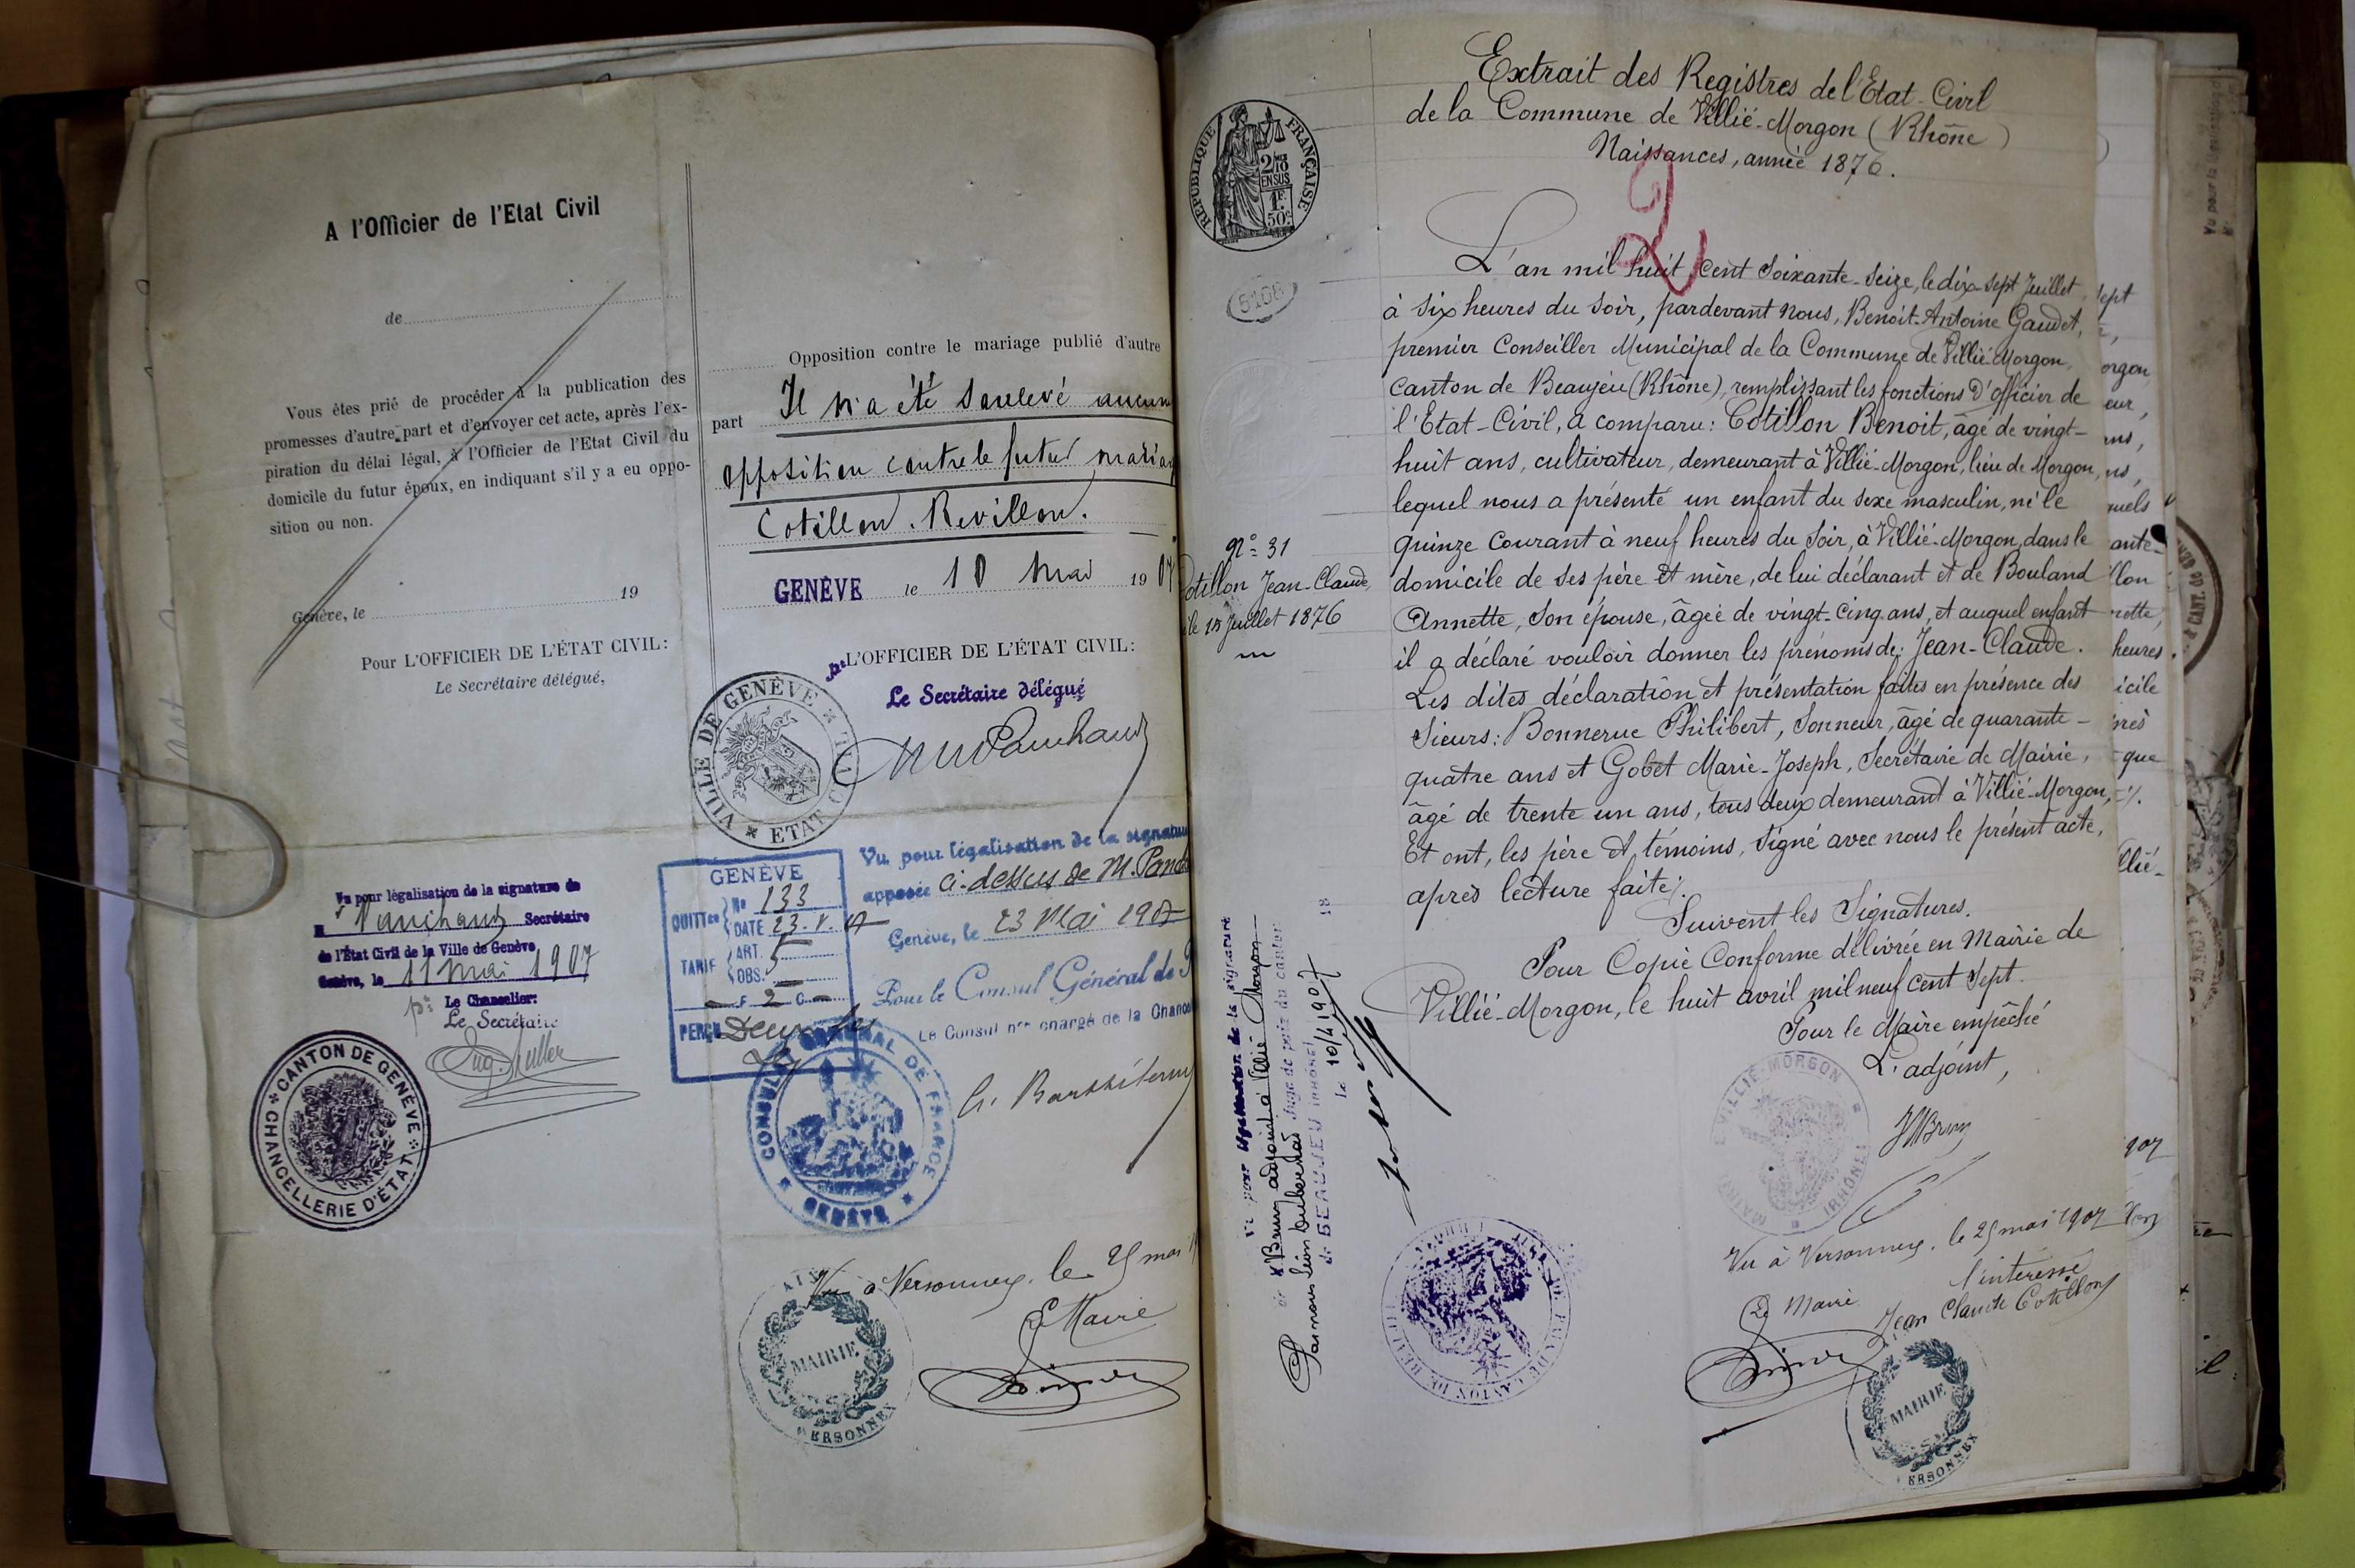 A l'Officier de l'Etat Civil
de
Vous êtes prié de procéder à la publication des
promesses d'autre part et d'envoyer cet acte, après l'ex-
piration du délai légal, à l'Officier de l'Etat Civil du
domicile du futur époux, en indiquant s'il y a eu oppo-
sition ou non.
Genève, le 19
Pour L'OFFICIER DE L'ÉTAT CIVIL:
Le Secrétaire délégué,
Opposition contre le mariage publié d'autre
part Il n'a été soulevé aucune
opposition contre le futur mariag
Cotillon. Revillon.
GENÈVE le 10 mai 1907
pr L'OFFICIER DE L'ÉTAT CIVIL:
Le Secrétaire délégué
VILLE DE GENÈVE * ETAT CIVIL *
Vu pour légalisation de la signature de
M Pauchaud Secrétaire
de l'État Civil de la Ville de Genève
Genève, le 11 mai 1907
pr Le Chancelier:
Le Secrétaire
CANTON DE GENÈVE
CHANCELLERIE D'ÉTAT
GENÈVE
QUITTce No 133
DATE 23. V. 07
TARIF ART. 5
OBS.
F 2 C
PERÇU Deux
Vu pour légalisation de la signature
apposée ci-dessus de M. Pauch
Genève, le 23 Mai 1907
Pour le Consul Général de
Le Consul chargé de la Chanc
CONSULAT GÉNÉRAL DE FRANCE
GENÈVE
Vu à Versonnex, le 25 mai
Le Maire
MAIRIE
VERSONNEX
Extrait des Registres de l'Etat-Civil
de la Commune de Villié-Morgon (Rhône)
Naissances, année 1876.
RÉPUBLIQUE FRANÇAISE
2/10
EN SUS
1F
50c
5108
2
L'an mil huit cent soixante-seize, le dix-sept Juillet
à six heures du soir, pardevant nous, Benoit-Antoine Gaudet,
premier Conseiller Municipal de la Commune de Villié-Morgon,
canton de Beaujeu (Rhône), remplissant les fonctions d'officier de
l'Etat-Civil, a comparu: Cotillon Benoit, âgé de vingt-
huit ans, cultivateur, demeurant à Villié-Morgon, lieu de Morgon,
lequel nous a présenté un enfant du sexe masculin, né le
quinze courant à neuf heures du soir, à Villié-Morgon, dans le
domicile de ses père et mère, de lui déclarant et de Bouland
Annette, son épouse, âgée de vingt-cinq ans, et auquel enfant
il a déclaré vouloir donner les prénoms de: Jean-Claude.
Les dites déclaration et présentation faites en présence des
Sieurs: Bonnerue Philibert, Sonneur, âgé de quarante-
quatre ans et Gobet Marie-Joseph, Secrétaire de Mairie,
âgé de trente un ans, tous deux demeurant à Villié-Morgon,
Et ont, les père et témoins, signé avec nous le présent acte,
après lecture faite.
Suivent les Signatures.
Pour Copie Conforme délivrée en Mairie de
Villié-Morgon, le huit avril mil neuf cent sept.
Pour le Maire empêché
L'adjoint,
No 31
Cotillon Jean-Claude,
le 15 Juillet 1876
Vu pour légalisation de la signature
de M Brun adjoint à Villié Morgon
Par nous Juge de paix du canton
de BEAUJEU (RHÔNE)
le 10/4 1907
MAIRIE VILLIÉ-MORGON (RHÔNE)
Vu à Versonnex, le 25 mai 1907
l'intéressé
Jean Claude Cotillon
Le Maire
MAIRIE
VERSONNEX